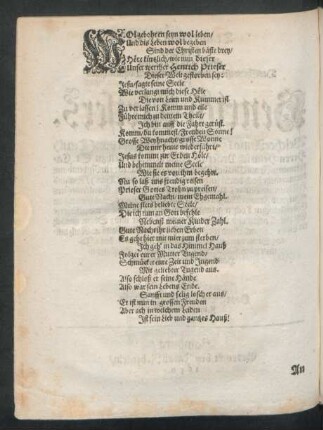 WOlgebohren seyn wol leben/
Und diß Leben wol begeben
Sind der Christen beste drey/
Höre kürtzlich/wie nun dieser
Unser werther Henrich Prieser
Dieser Welt gestorben sey:
Jesu/sagte seine Seele
Wie verlangt mich diese Höle
Die von Leim und Kummer ist
Zu verlassen! Komm und eile
Führe mich zu deinem Theile/
Ich bin auff die Fahrt gerüst.
Komm/du kommest/
Grosse Weyhnacht/grosse Wonne
Die mir heute wiederfahren/
Jesus kommt zur Erden Höle/
Und
Wie sie es von ihm begehrt.
Nu so laß uns
Prieser Gottes Trohn zu preisen/
Gute Nacht/mein Ehgemahl.
Meine stets beliebte Seele/
Die ich nun an Gott befehle
Nebenst meiner Kinder Zahl.
Gute Nacht ihr lieben Erben
Es geht hier mit mir zum sterben/
Ich geh' in das Himmel Hauß
Folget eurer Mutter Tugend/
Schmücket eure Zeit und Jugend
Mit geliebter Tugend aus.
Also schloß er seine Hände
Also war sein Lebens Ende.
Sanfft und selig losch er aus/
Er ist nun in grossen Freuden
Aber ach in welchem Leiden
Ist sein Lieb und gantzes Hauß!
An